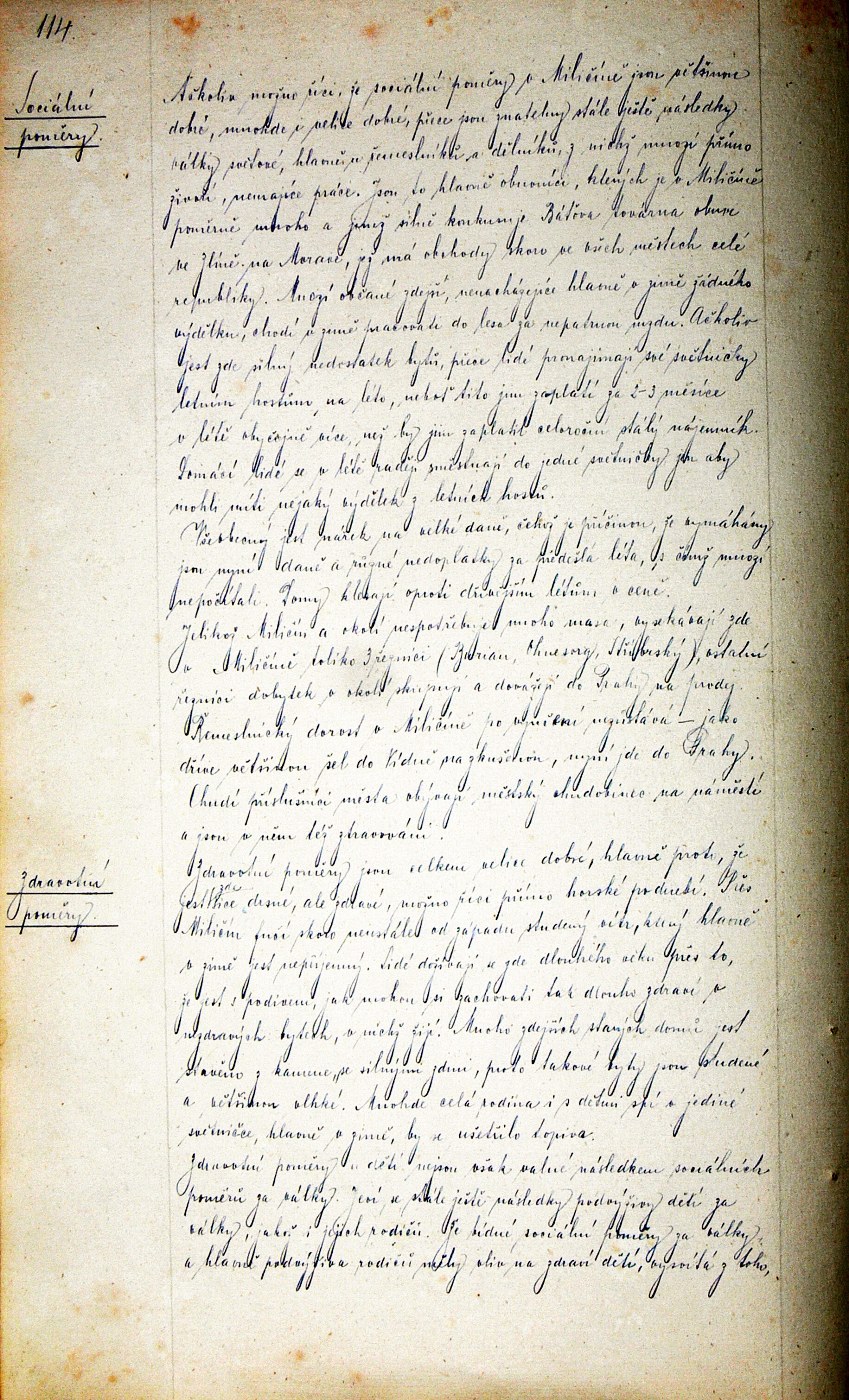 114.
Sociální
poměry.
Ačkoliv možno říci, že sociální poměry v Miličíně jsou většinou
dobré, mnohde i velice dobré, přece jsou znatelny stále ještě následky
války světové, hlavně u řemeslníků a dělníků, z nichž mnozí přímo
živoří, nemajíce práce. Jsou to hlavně obuvníci, kterých je v Miličíně
poměrně mnoho a jimž silně konkuruje Báťova továrna obuvi
ve Zlíně na Moravě, jež má obchody skoro ve všech městech celé
republiky. Mnozí občané zdejší, nenacházejíce hlavně v zimě žádného
výdělku, chodí v zimě pracovati do lesa za nepatrnou mzdu. Ačkoliv
jest zde silný nedostatek bytů, přece lidé pronajímají své světničky
letním hostům na léto, neboť tito jim zaplatí za 2-3 měsíce
v létě obyčejně více, než by jim zaplatil celoroční stálý nájemník.
Domácí lidé se v létě raději směstnají do jedné světničky jen aby
mohli míti nějaký výdělek z letních hostů.
Všeobecný jest nářek na velké daně, čehož je příčinou, že vymáhány
jsou nyní daně a různé nedoplatky za předešlá léta, s čímž mnozí
nepočítali. Domy klesají oproti dřívějším létům v ceně.
Jelikož Miličín a okolí nespotřebuje mnoho masa, vysekávají zde
v Miličíně toliko 3 řezníci (Burian, Ohnesorg, Stříbrský), ostatní
řezníci dobytek v okolí skupují a dovážejí do Prahy na prodej.
Řemeslnický dorost v Miličíně po vyučení nezůstává – jako
dříve většinou šel do Vídně na zkušenou, nyní jde do Prahy.
Chudí příslušníci města obývají městský chudobinec na náměstí
a jsou v něm též stravováni.
Zdravotní
poměry.
Zdravotní poměry jsou celkem velice dobré, hlavně proto, že
jest zde sice drsné, ale zdravé, možno říci přímo horské podnebí. Přes
Miličín fučí skoro neustále od západu studený vítr, který hlavně
v zimě jest nepříjemný. Lidé dožívají se zde dlouhého věku přes to,
že jest s podivem, jak mohou si zachovati tak dlouho zdraví v
nezdravých bytech, v nichž žijí. Mnoho zdejších starých domů jest
stavěno z kamene, se silnými zdmi, proto takové byty jsou studené
a většinou vlhké. Mnohde celá rodina i s dětmi spí v jediné
světničce, hlavně v zimě, by se ušetřilo topiva.
Zdravotní poměry u dětí nejsou však valné následkem sociálních
poměrů za války. Jeví se stále ještě následky podvýživy dětí za
války, jakož i jejich rodičů. Že bídné sociální poměry za války,
a hlavně podvýživa rodičů měly vliv na zdraví dětí, vysvítá z toho,